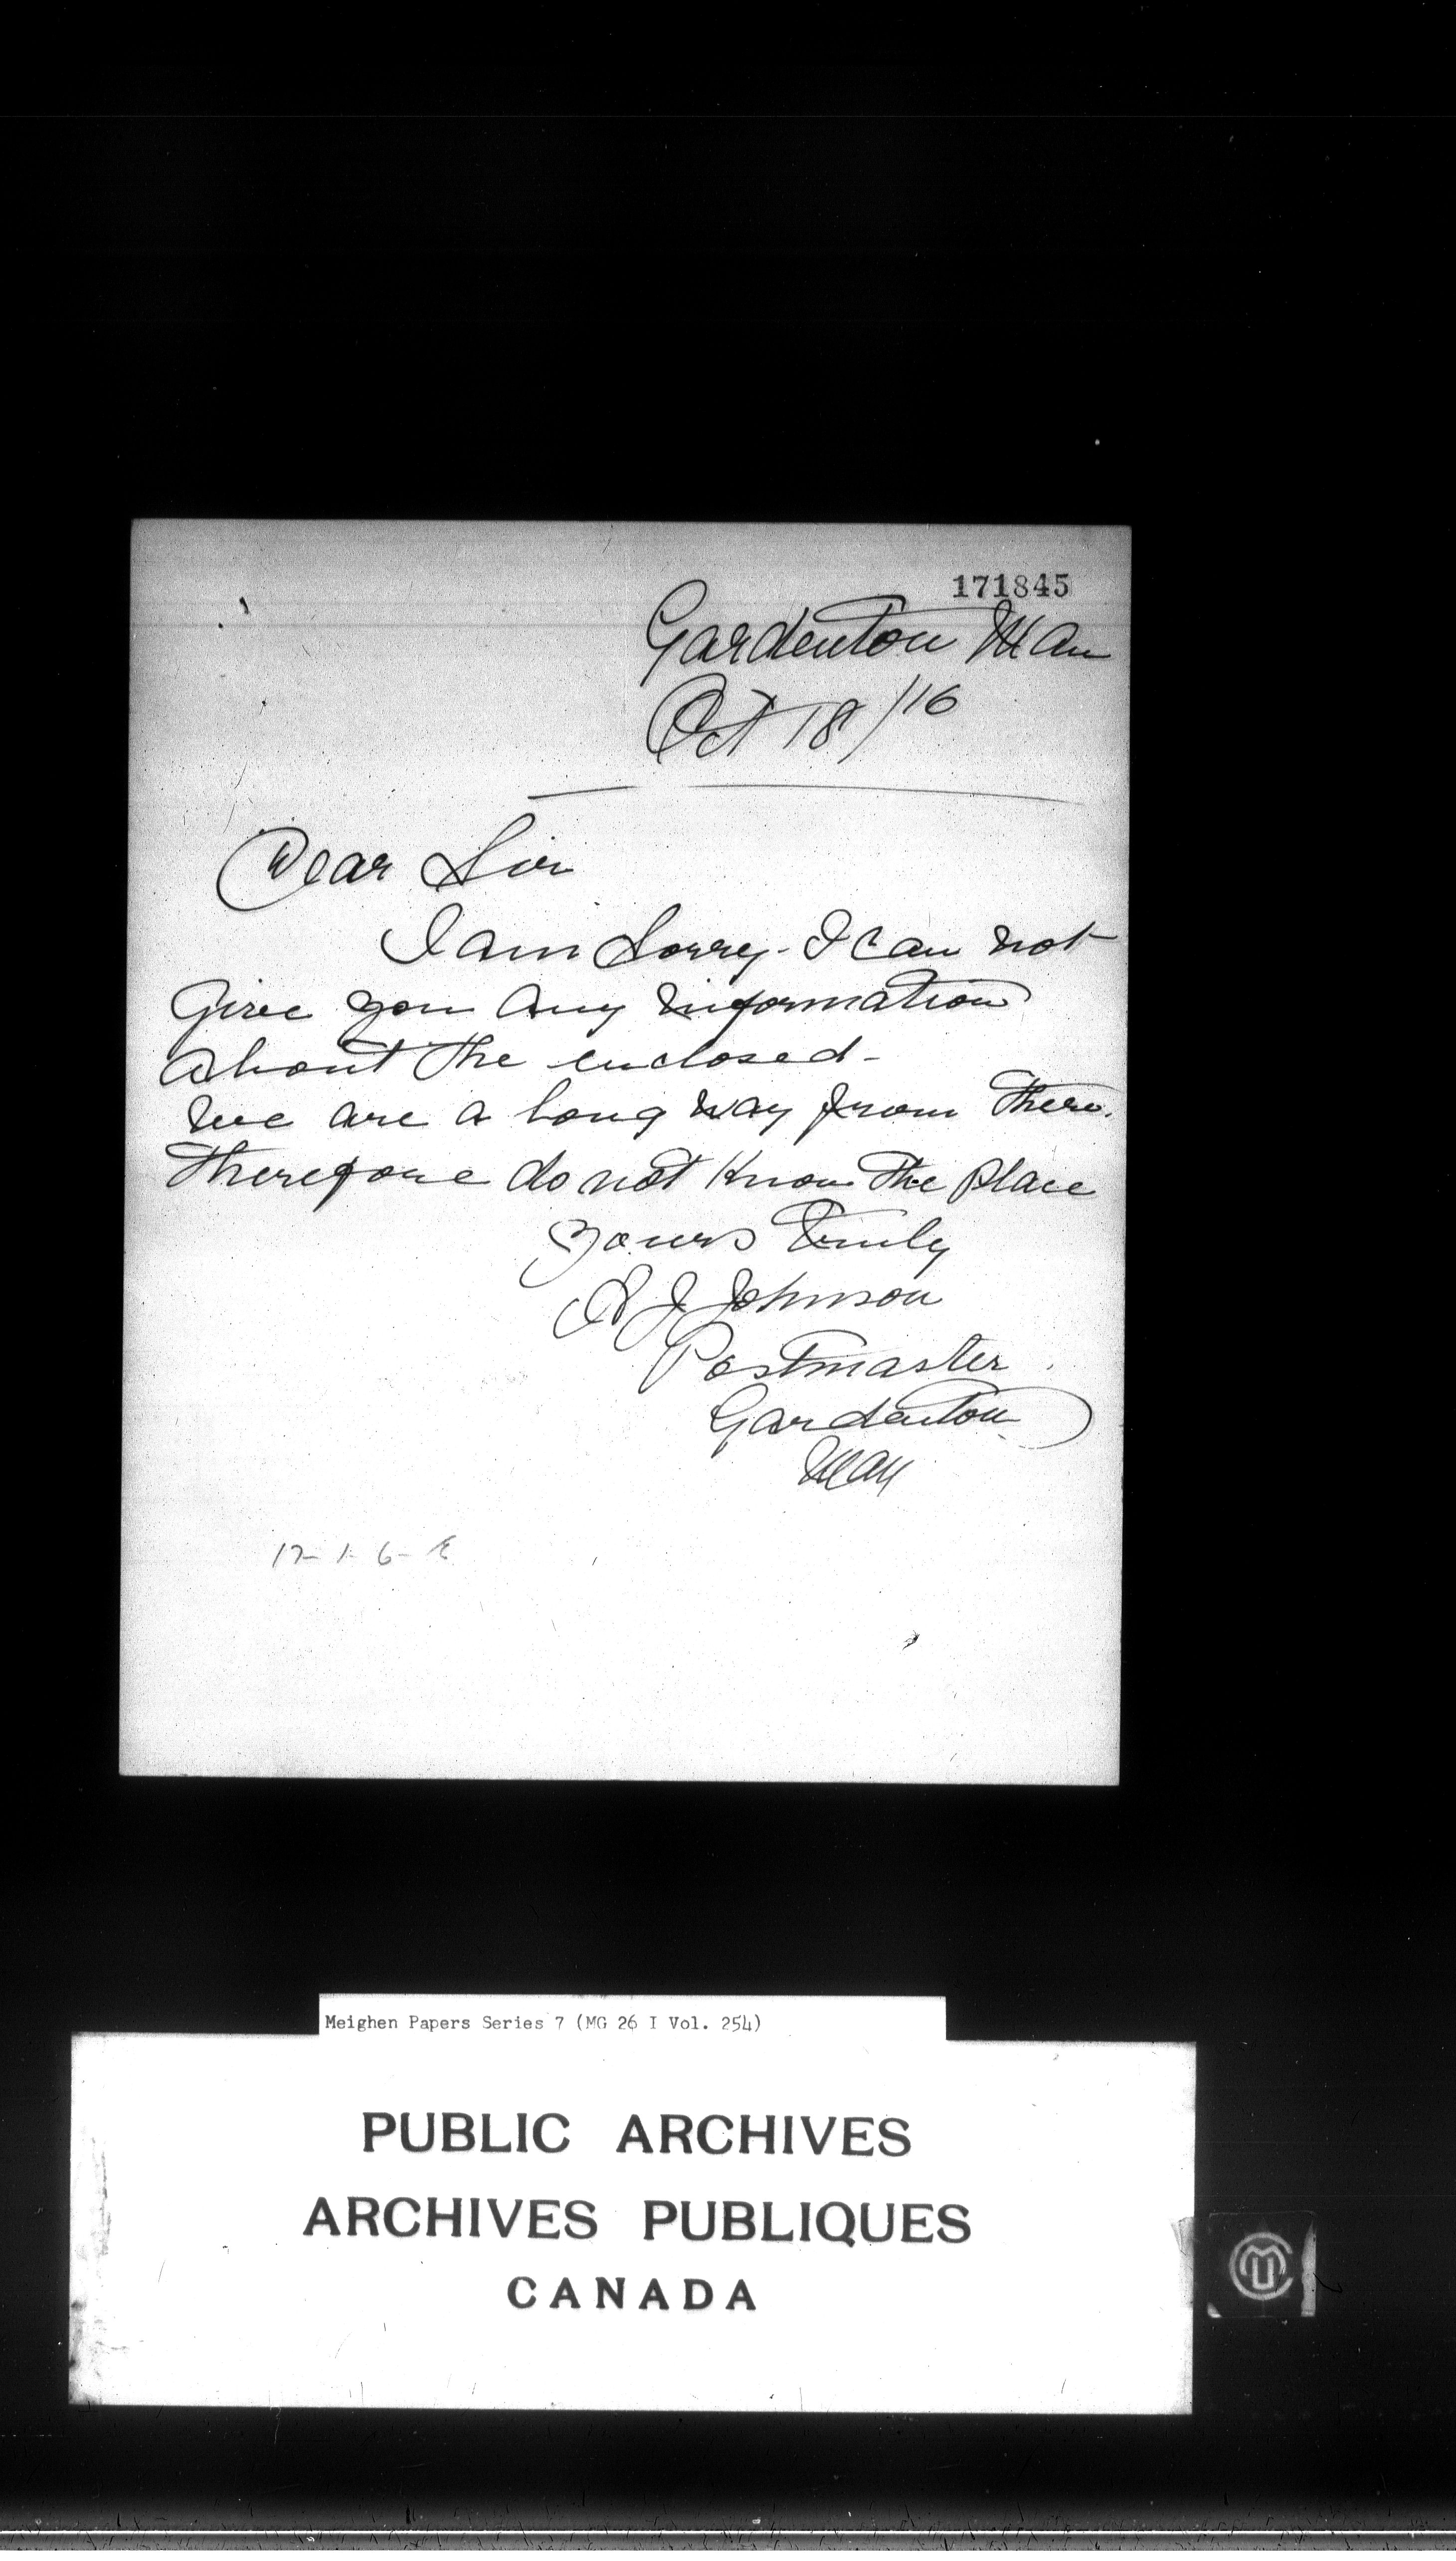 171845
Gardenton Man
Oct 18/16
Dear Sir
I am Sorry - I Can not
Give you Any Information
About the enclosed -
We are a long way from There.
Therefore do not Know The Place
Yours Truly
J Johnson
Postmaster
Gardenton
Man
Meighen Papers Series 7 (MG 26 I Vol. 254)
PUBLIC ARCHIVES
ARCHIVES PUBLIQUES
CANADA